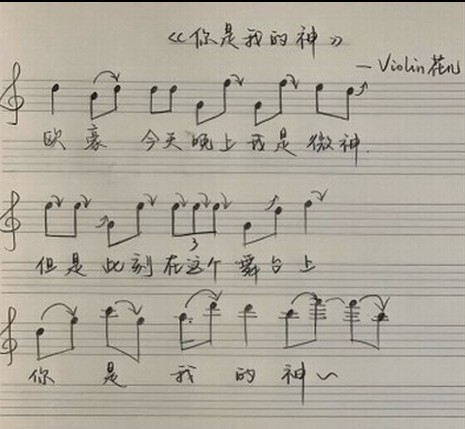 《你是我的神》
— Violin花儿
欧豪 今天晚上我是微神.
3
但是此刻在这个舞台上
你 是 我 的 神~